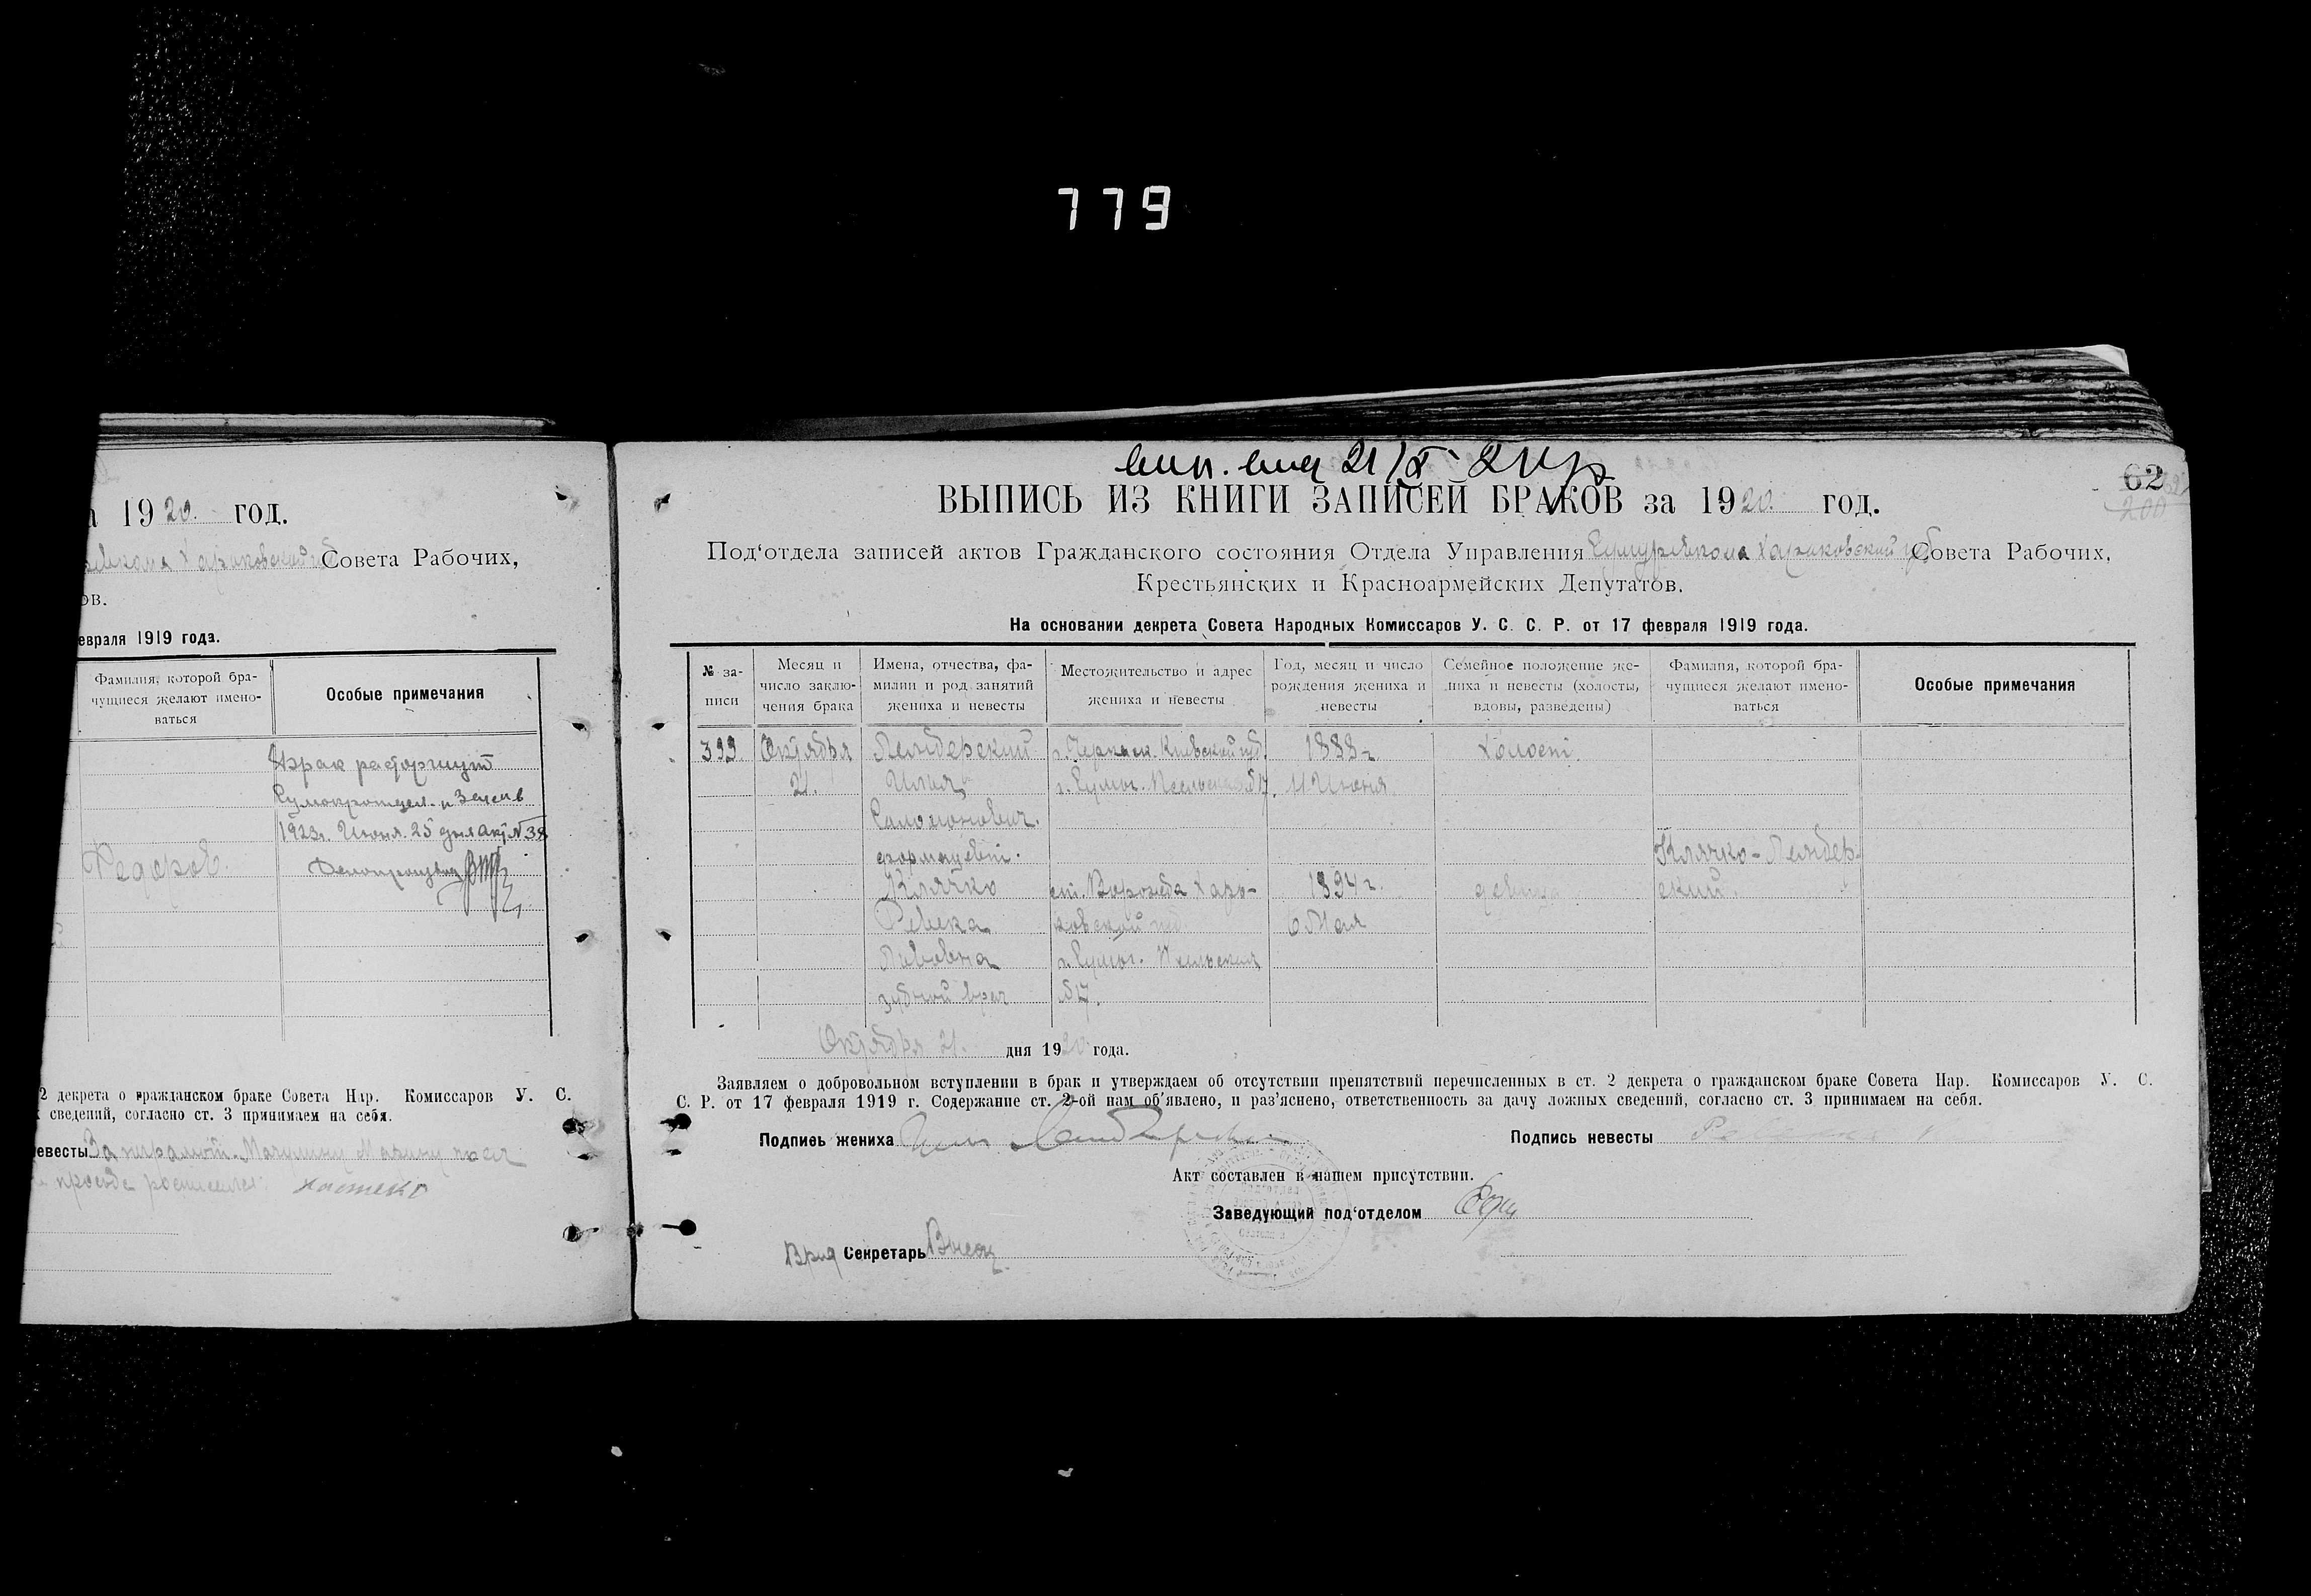 779
1920 год.
Харьковской Совета Рабочих,
ов.
евраля 1919 года.
Фамилия, которой бра-
чущиеся желают имено-
ваться
Особые примечания
расторгнут
1923г. Июня 25 дня акт N 38
Федоров.
2 декрета о гражданском браке Совета Нар. Комиссаров У. С.
сведений, согласно ст. 3 принимаем на себя.
евесты За неграмотн.
просьбе
62
200
ВЫПИСЬ ИЗ КНИГИ ЗАПИСЕЙ БРАКОВ за 1920 год.
Под‘отдела записей актов Гражданского состояния Отдела Управления Харьковской губ Совета Рабочих,
Крестьянских и Красноармейских Депутатов.
На основании декрета Совета Народных Комиссаров У. С. С. Р. от 17 февраля 1919 года.
№ за-
писи
Месяц и
число заклю-
чения брака
Имена, отчества, фа-
милии и род занятий
жениха и невесты
Местожительство и адрес
жениха и невесты
Год, месяц и число
рождения жениха и
невесты
Семейное положение же-
ниха и невесты (холосты,
вдовы, разведены)
Фамилия, которой бра-
чущиеся желают имено-
ваться
Особые примечания
399
Октября
21.
Лендерский
Илья
Соломонович.
фармацевт.
г. Черкасы Киевской губ.
г. Сумы.
1888 г
11 Июня
Холост.
Клячко
Ревека
Львовна
зубной врач
ст. Ворожба Харь-
ковской губ.
г. Сумы.
1894 г.
6 Мая
девица
Клячко-Лендер-
ский.
Октября 21. дня 1920 года.
Заявляем о добровольном вступлении в брак и утверждаем об отсутствии препятствий перечисленных в ст. 2 декрета о гражданском браке Совета Нар. Комиссаров У. С.
С. Р. от 17 февраля 1919 г. Содержание ст. 2-ой нам об‘явлено, и раз‘яснено, ответственность за дачу ложных сведений, согласно ст. 3 принимаем на себя.
Подпись жениха
Подпись невесты
Акт составлен в нашем присутствии.
Заведующий под‘отделом
Врид Секретарь